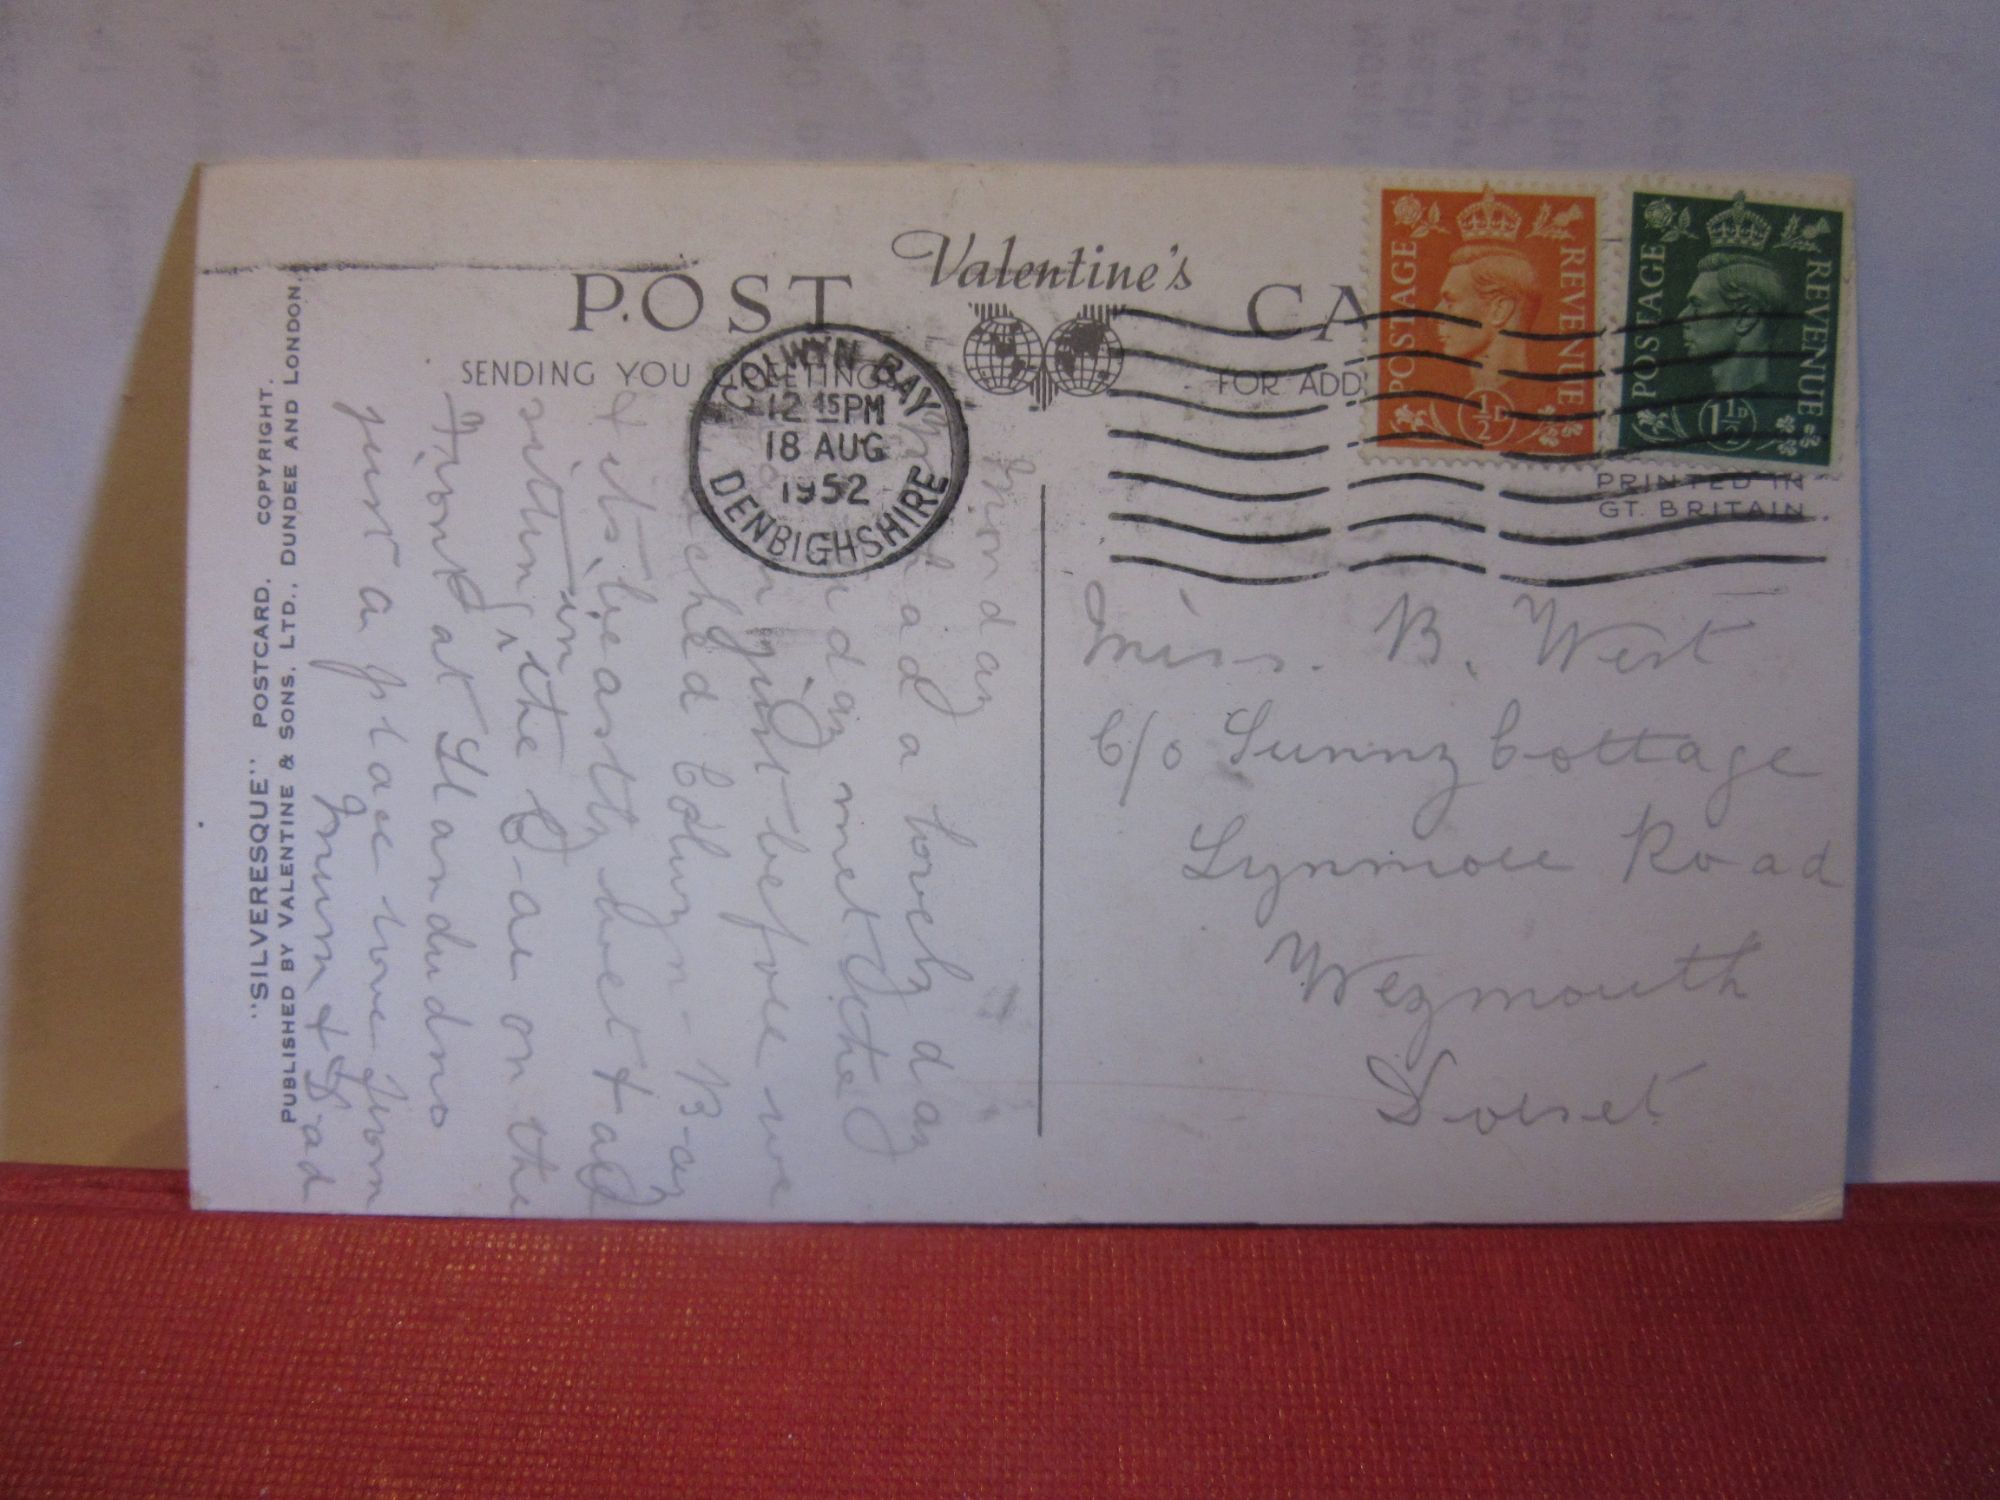 Valentine's
POST CA
SENDING YOU GREETINGS
FOR ADD
COLWYN BAY
12 45 PM
18 AUG
1952
DENBIGHSHIRE
POSTAGE REVENUE
½D
POSTAGE REVENUE
1½D
PRINTED IN
GT. BRITAIN
Monday
had a lovely day
met the
just before we
Colwyn-Bay
& its beastly wet &
sitting in the C-ar on the
front at Llandudno
just a place love from
Mum & Dad
Miss. B. West
C/o Sunny Cottage
Lynmore Road
Weymouth
Dorset
"SILVERESQUE" POSTCARD. COPYRIGHT.
PUBLISHED BY VALENTINE & SONS. LTD., DUNDEE AND LONDON.